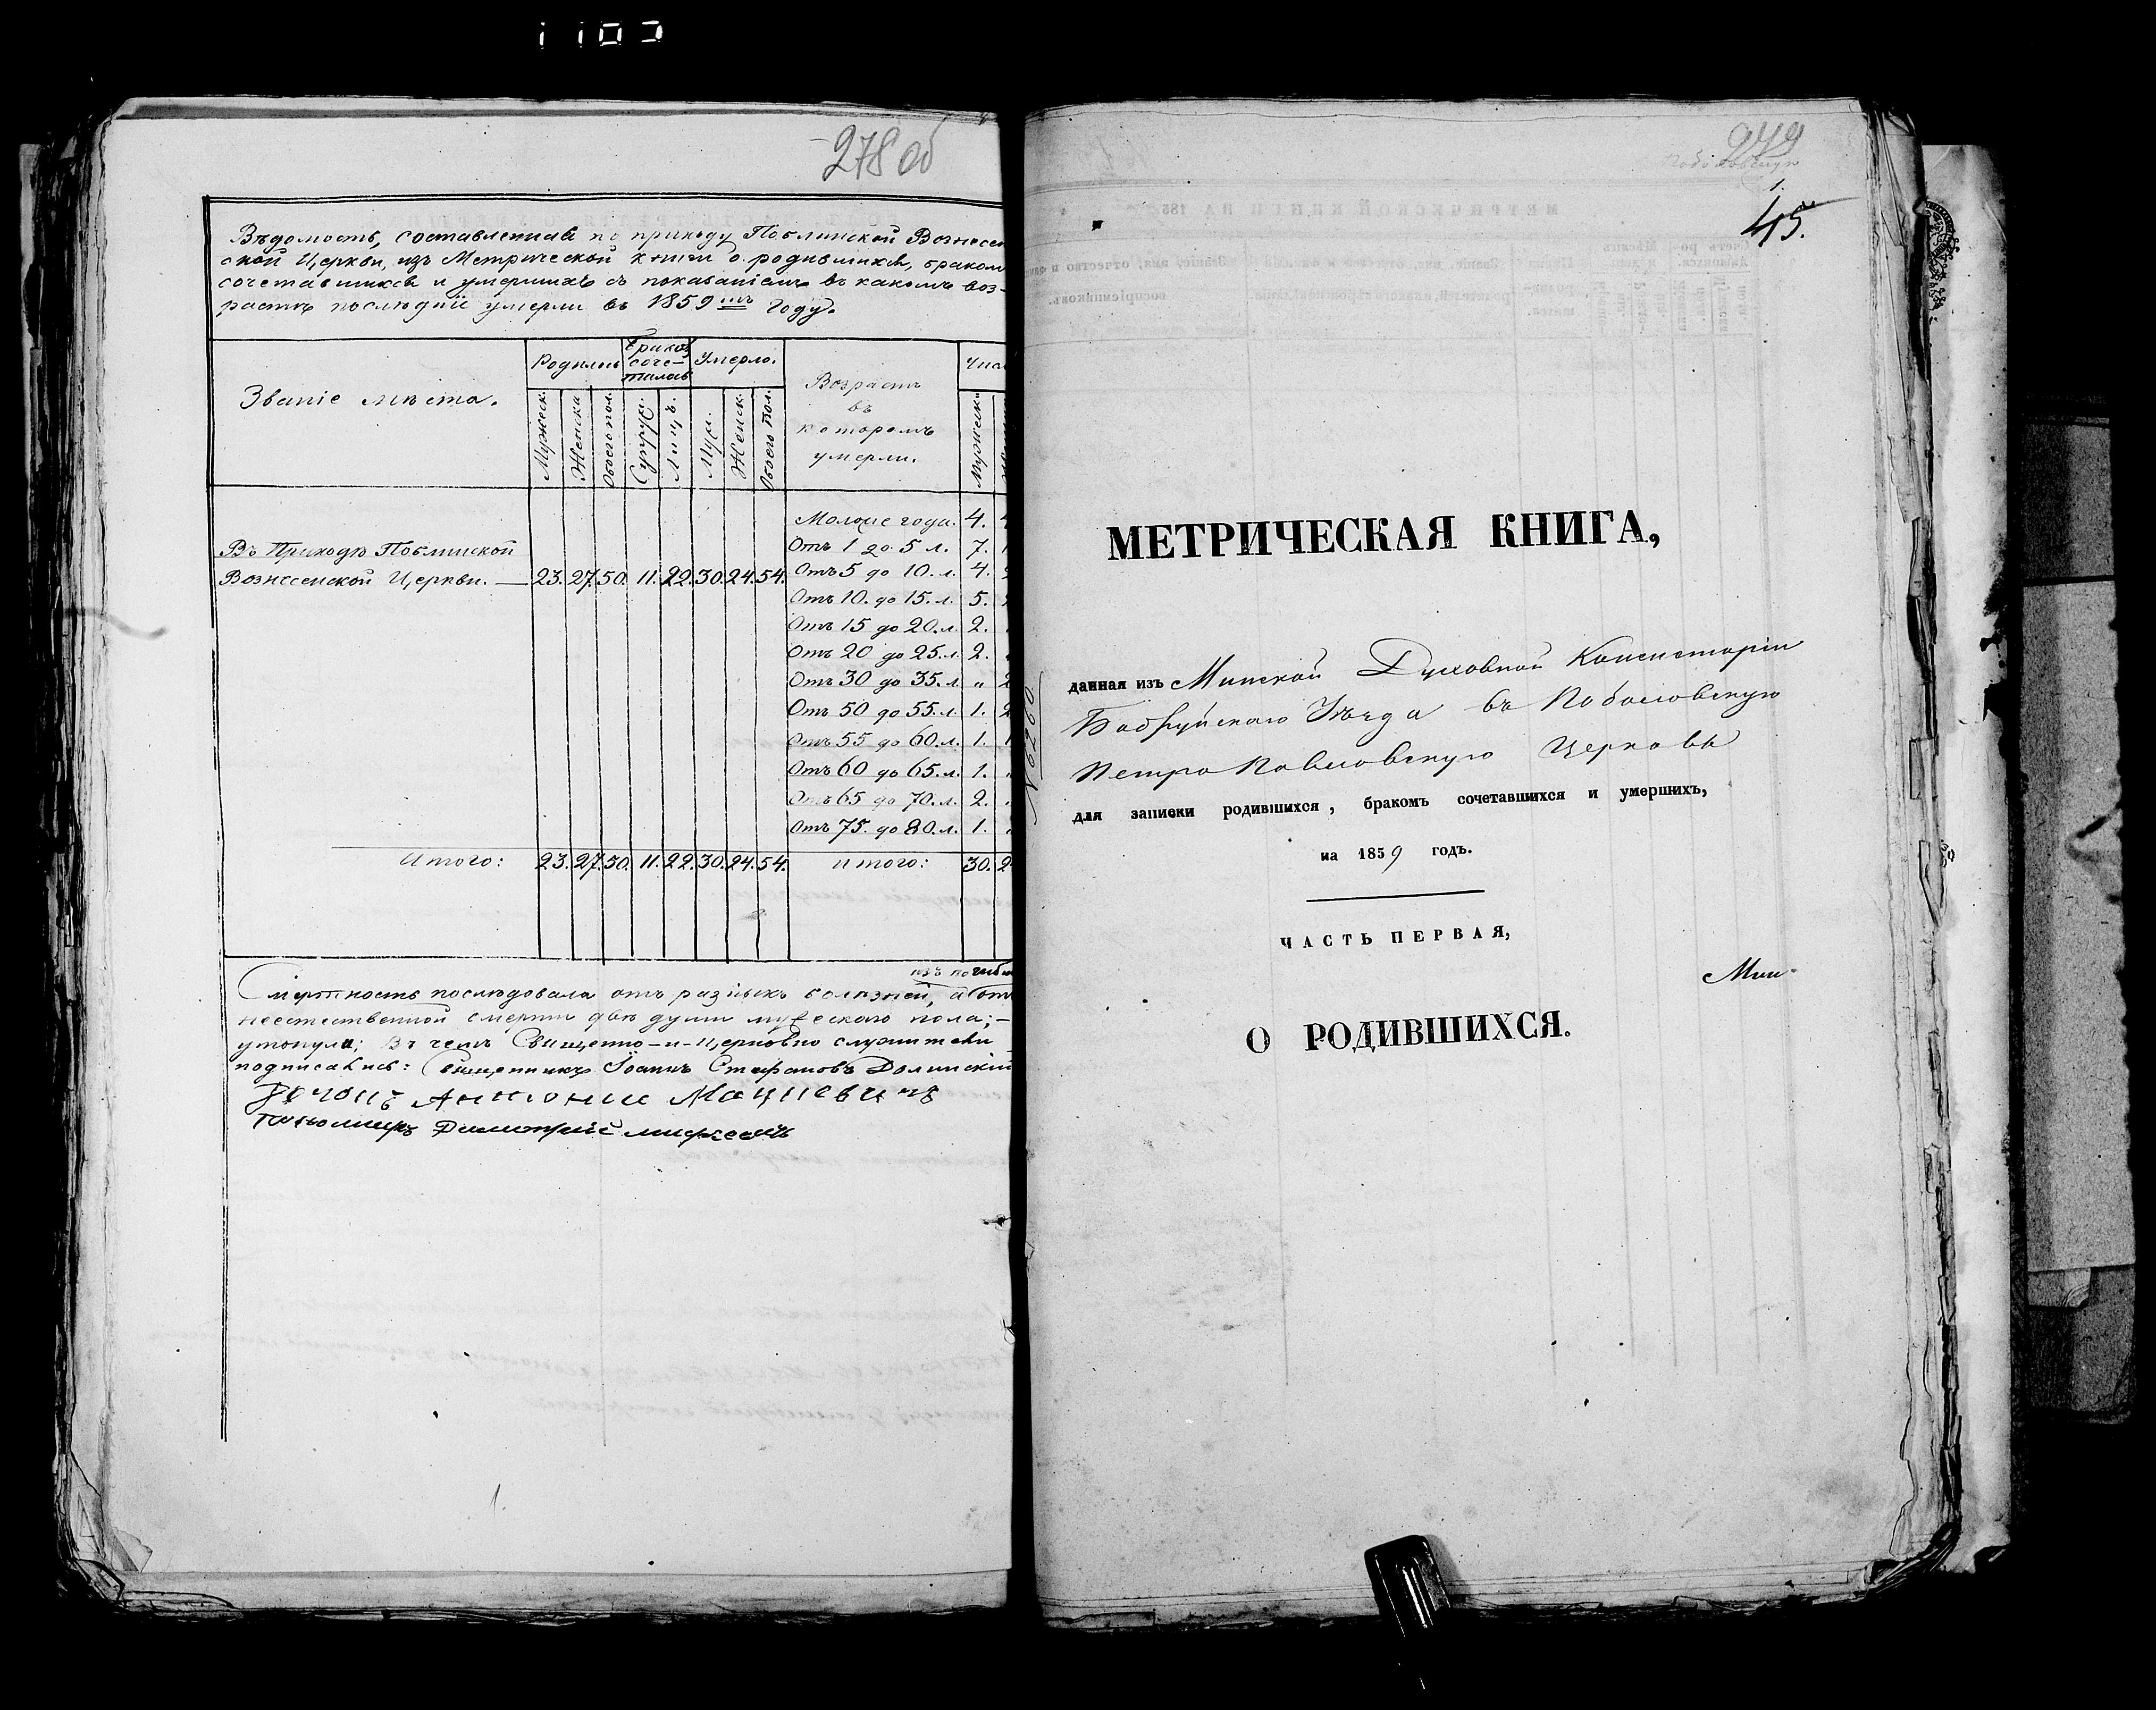 278 об
Вѣдомость, составленная по приходу Поблинской Вознесен
ской Церкви, изъ Метрической книги о родившихся, браком
сочетавшихся и умершихъ съ показаніемъ въ какомъ воз-
растѣ послѣдніе умерли въ 1859мъ году.
Званіе мѣста.
Родилось
Бракомъ сочеталось
Умерло.
Возрастъ въ которомъ умерли.
Числ
Мужеск.
Женска
Обоего пол.
Супруж.
Лицъ.
Муж.
Женск.
Обоего Пол.
Мужеск.
Въ Приходѣ Поблинской
Вознесенской Церкви. — 23. 27. 50. 11. 22. 30. 24. 54.
Моложе года. 4.
Отъ 1 до 5 л. 7.
Отъ 5 до 10. л. 4.
Отъ 10. до 15. л. 5.
Отъ 15 до 20. л. 2.
Отъ 20 до 25. л. 2.
Отъ 30 до 35. л. „ 2
Отъ 50 до 55. л. 1. 2
Отъ 55 до 60. л. 1. 1
Отъ 60 до 65. л. 1.
Отъ 65 до 70. л. 2.
Отъ 75. до 80. л. 1.
Итого: 23. 27. 50. 11. 22. 30. 24. 54. Итого: 30. 2
Смертность послѣдовала отъ разныхъ болѣзней, а отъ
неестественной смерти двѣ души мужескаго пола; —
утонула; Въ чемъ Священно-и-церковно служители
подписались: Священникъ Іоаннъ Стефановъ Долинскій
Антоній Мацкевичъ
Пономарь Димитрій
1.
279
1.
45.
МЕТРИЧЕСКАЯ КНИГА,
данная изъ Минской Духовной Консисторіи
Бобруйскаго Уѣзда въ Побоковскую
Петро Павловскую Церковь
для записки родившихся, бракомъ сочетавшихся и умершихъ,
на 1859 годъ.
ЧАСТЬ ПЕРВАЯ,
Мин-
О РОДИВШИХСЯ.